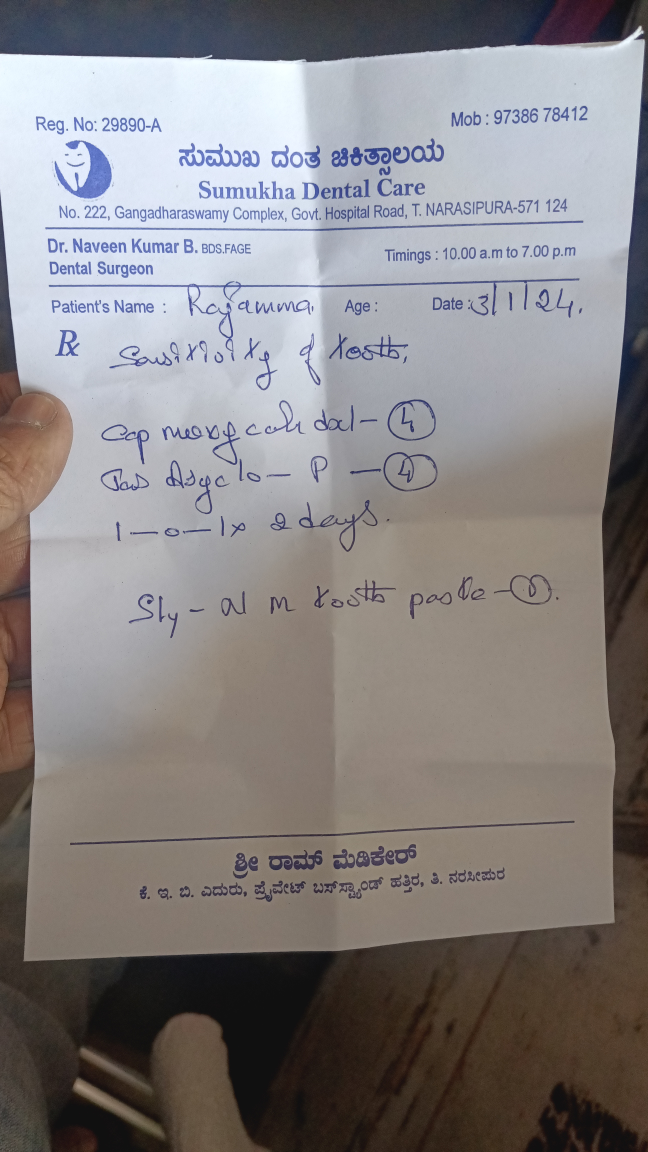 Reg. No: 29890-A
Mob : 97386 78412
ಸುಮುಖ ದಂತ ಚಿಕಿತ್ಸಾಲಯ
Sumukha Dental Care
No. 222, Gangadharaswamy Complex, Govt. Hospital Road, T. NARASIPURA-571 124
Dr. Naveen Kumar B. BDS.FAGE
Timings : 10.00 a.m to 7.00 p.m
Dental Surgeon
Patient's Name : Rajamma. Age : Date : 3/1/24.
Rx
of tooth,
Cap - 4
Tab - P - 4
1-0-1x 2 days.
tooth paste - 1.
ಶ್ರೀ ರಾಮ್ ಮೆಡಿಕೇರ್
ಕೆ. ಇ. ಬಿ. ಎದುರು, ಪ್ರೈವೇಟ್ ಬಸ್‌ಸ್ಟ್ಯಾಂಡ್ ಹತ್ತಿರ, ತಿ. ನರಸೀಪುರ